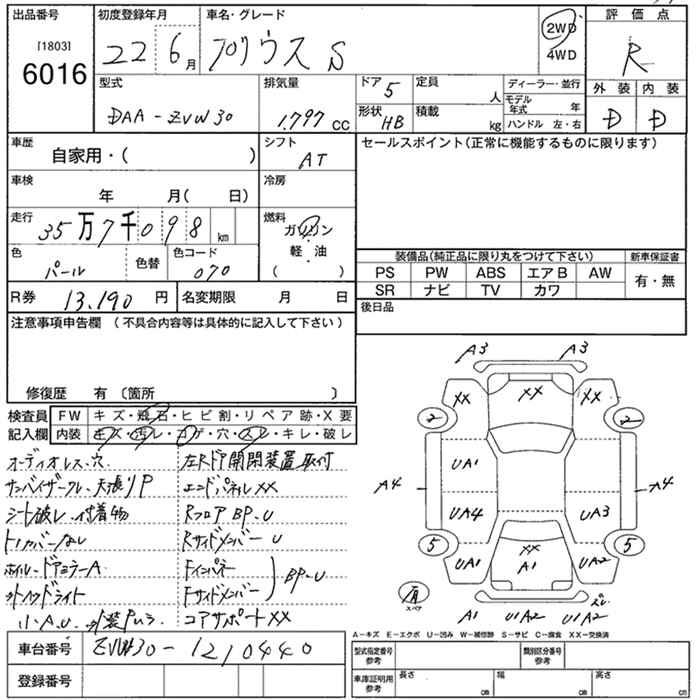 出品番号
[1803]
6016
初度登録年月
22 6月
車名・グレード
プリウス S
2WD
4WD
評価点
R
型式
DAA-ZVW30
排気量
1.797 cc
ドア 5
形状 HB
定員 人
積載 kg
ディーラー・並行
モデル年式 年
ハンドル 左・右
外装 内装
D D
車歴
自家用・( )
シフト
AT
セールスポイント(正常に機能するものに限ります)
車検
年 月( 日)
冷房
走行
35万7千098km
燃料
ガソリン
軽・油
( )
色
パール
色替
色コード
070
R券 13.190 円
名変期限 月 日
装備品(純正品に限り丸をつけて下さい)
新車保証書
PS PW ABS エアB AW
SR ナビ TV カワ
有・無
後日品
注意事項申告欄 (不具合内容等は具体的に記入して下さい)
修復歴 有 〔箇所 〕
検査員記入欄
FW キズ・飛石・ヒビ割・リペア跡・X要
内装 キズ・汚レ・コゲ・穴・スレ・キレ・破レ
オーディオレス、穴
サンバイザークレ、天張りP
シート破レ、付着物
トノカバーなし
ホイル、ドアミラーA
ヘッドライト
小A.U
左Rドア開閉装置取付
エンドパネルXX
Rフロア BP、U
Rサイドメンバー U
Fインパネ
Fサイドメンバー
BP、U
コアサポートXX
A3 A3
XX XX XX
2 2
UA1
A4 A4
UA4 UA3
5 5
UA1 XX UA2
A1
有
スペア
A1 U1A2 U1A2
A-キズ E-エクボ U-凹み W-補修跡 S-サビ C-腐食 XX-交換済
車台番号 ZVW30-1210440
登録番号
型式指定番号参考
類別区分番号参考
車庫証明用参考
長さ cm 幅 cm 高さ cm